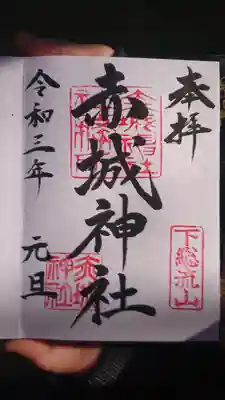 奉拝
下総流山
赤城神社
令和三年 元旦